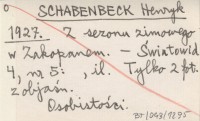 SCHABENBECK Henryk
1927. Z sezonu zimowego
w Zakopanem. – Światowid
4, nr 5: , il. Tylko 2 fot.
z objaśn.
Osobistości.